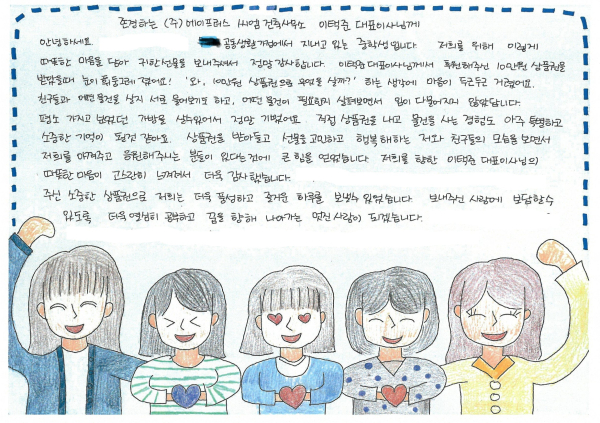 존경하는 (주)에이플러스 씨엠 건축사무소 이택준 대표이사님께
안녕하세요. 공동생활가정에서 지내고 있는 중학생입니다. 저희를 위해 이렇게
따뜻한 마음을 담아 귀한 선물을 보내주셔서 정말 감사합니다. 이택준 대표이사님께서 후원해주신 10만원 상품권을
받았을때 눈이 휘둥그레 졌어요! '와, 10만원 상품권으로 무엇을 살까?' 하는 생각에 마음이 두근두근 거렸어요.
친구들과 어떤 물건을 살지 서로 물어보기도 하고, 어떤 물건이 필요한지 살펴보면서 입이 다물어지지 않았답니다.
평소 가지고 싶었던 가방을 살수있어서 정말 기뻤어요. 직접 상품권을 내고 물건을 사는 경험도 아주 특별하고
소중한 기억이 된것 같아요. 상품권을 받아들고 선물을 고민하고 행복해하는 저와 친구들의 모습을 보면서
저희를 아껴주고 응원해주시는 분들이 있다는 것에 큰 힘을 얻었습니다. 저희를 향한 이택준 대표이사님의
따뜻한 마음이 고스란히 느껴져서 더욱 감사했습니다.
주신 소중한 상품권으로 저희는 더욱 풍성하고 즐거운 하루를 보낼수 있었습니다. 보내주신 사랑에 보답할수
있도록 더욱 열심히 공부하고 꿈을 향해 나아가는 멋진 사람이 되겠습니다.